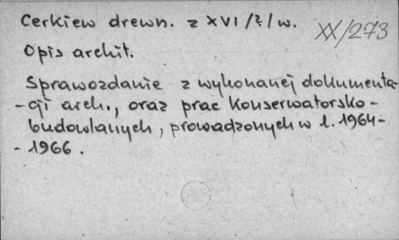 Cerkiew drewn. z XVI /?/ w.
XX/273
Opis archit.
Sprawozdanie z wykonanej dokumenta-
-cji arch., oraz prac konserwatorsko-
budowlanych, prowadzonych w l. 1964-
- 1966.